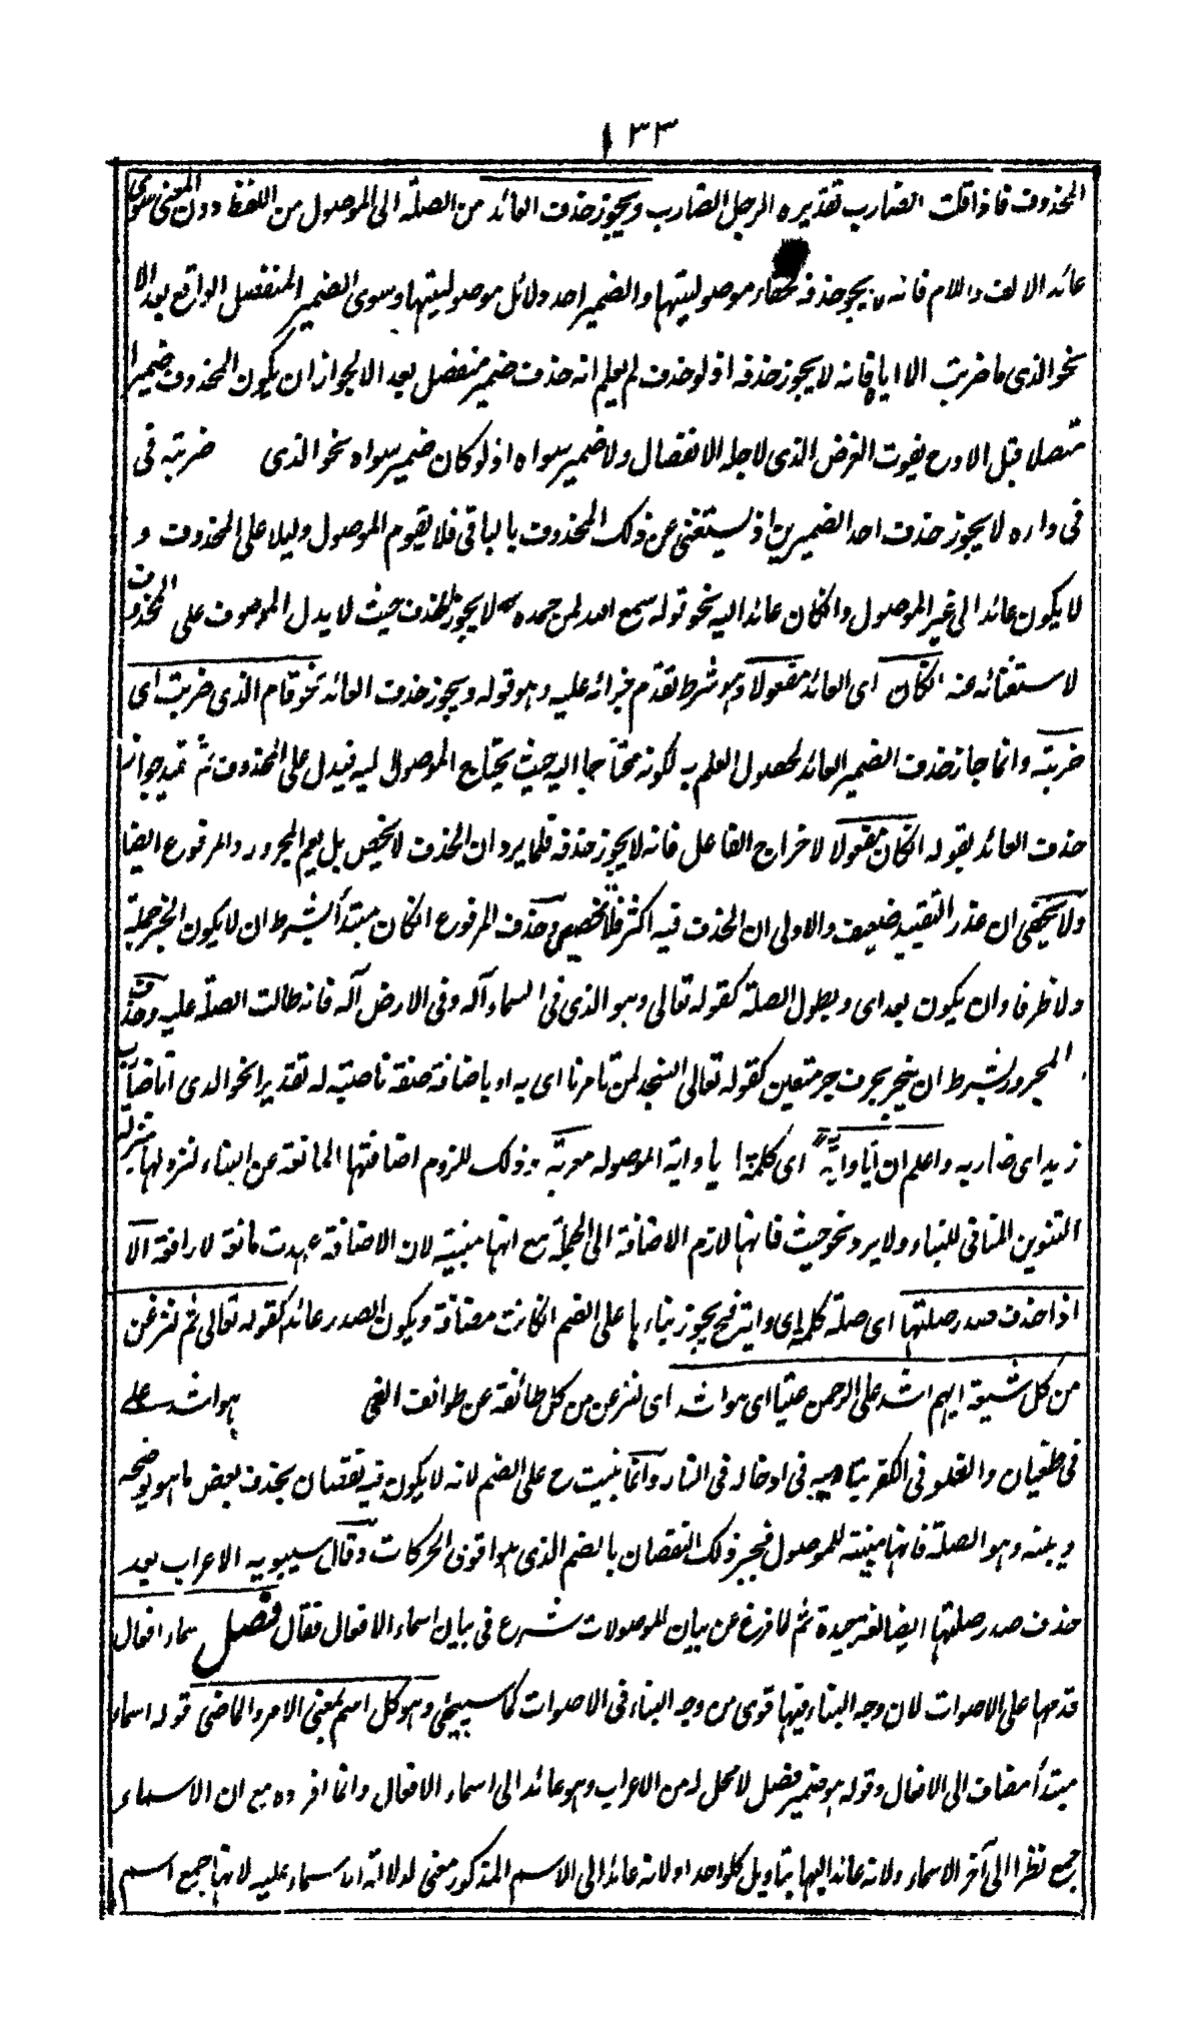 ١٣٣
المحذوف فاذا قلت الضارب تقديره الرجل الضارب ويجوز حذف العائد من الصلة الى الموصول من اللفظ دون المعنى سوى
عائد الالف واللام فانه لا يجوز حذفه لخفاء موصوليتها والضمير احد دلائل موصوليتها وسوى الضمير المنفصل الواقع بعد الا
نحو الذى ما ضربت الا اياه فانه لا يجوز حذفه اذ لو حذف لم يعلم انه حذف ضمير منفصل بعد الا لجواز ان يكون المحذوف ضميرا
متصلا قبل الا وح يفوت الغرض الذى لاجله الانفصال ولا ضمير سواه اذ لو كان ضمير سواه نحو الذى ضربته فى
فى داره لا يجوز حذف احد الضميرين اذ يستغنى عن ذلك المحذوف بالباقى فلا يقوم الموصول دليلا على المحذوف و
لا يكون عائدا الى غير الموصول وان كان عائدا اليه نحو قوله سمع الله لمن حمده لا يجوز الحذف حيث لا يدل الموصوف على المحذوف
لاستغنائه عنه ان كان اى العائد مفعولا وهو شرط تقدم جزائه عليه وهو قوله ويجوز حذف العائد نحو قام الذى ضربت اى
ضربته وانما جاز حذف الضمير العائد لحصول العلم به لكونه محتاجا اليه حيث يحتاج الموصول اليه فيدل على المحذوف ثم قيد جواز
حذف العائد بقوله ان كان مفعولا لاخراج الفاعل فانه لا يجوز حذفه فلما يرد ان الحذف لا يخص بل يعم المجرور والمرفوع ايضا
ولا يخفى ان عذر التقييد ضعيف والاولى ان الحذف فيه اكثر فلا تخصيص وحذف المرفوع ان كان مبتدأ بشرط ان لا يكون الخبر جملة
ولا ظرفا وان يكون بعد اى وبطول الصلة كقوله تعالى وهو الذى فى السماء اله وفى الارض اله فانه طالت الصلة عليه وحذف
المجرور بشرط ان ينجر بحرف جر متعين كقوله تعالى انسجد لمن تامرنا اى به او باضافة صفة ناصبة له تقديرا نحو الذى انا ضارب
زيد اى ضاربه واعلم ان ايا واية اى كلمة يا واية الموصولة معربة وذلك للزوم اضافتها المانعة عن البناء لنزولها منزلة
التنوين المنافى للبناء ولا يرد نحو حيث فانها لازم الاضافة الى الجملة مع انها مبنية لان الاضافة عهدت مانعة لا رافعة الا
اذا حذف صدر صلتها اى صلة كلمة اى واية فح يجوز بناءها على الضم ان كانت مضافة ويكون الصدر عائدا كقوله تعالى ثم لننزعن
من كل شيعة ايهم اشد على الرحمن عتيا اى هو اشد اى لننزعن من كل طائفة عن طوائف الغى هو اشد على
فى طغيان والغلو فى الكفر فى ادخاله فى النار وانما بنيت ح على الضم لانه لا يكون فيه نقصان بحذف بعض ما هو يوضحه
ويبينه وهو الصلة فانها مبينة للموصول فجبر ذلك النقصان بالضم الذى هو اقوى الحركات وقال سيبويه الاعراب بعد
حذف صدر صلتها ايضا لغة جيدة ثم لما فرغ عن بيان الموصولات شرع فى بيان اسماء الافعال فقال فصل اسماء افعال
قدمها على الاصوات لان وجه البناء فيها قوى من وجه البناء فى الاصوات كما سيجئى وهو كل اسم بمعنى الامر والماضى قوله اسماء
مبتدأ مضاف الى الافعال وقوله هو ضمير فصل لا محل له من الاعراب وهو عائد الى اسماء الافعال وانما افرده مع ان الاسماء
جمع نظرا الى آخر الاسماء ولانه عائد اليها بتاويل كلواحد اولانه عائد الى الاسم المذكور معنى لدلالة اسماء عليه لانها جمع اسم